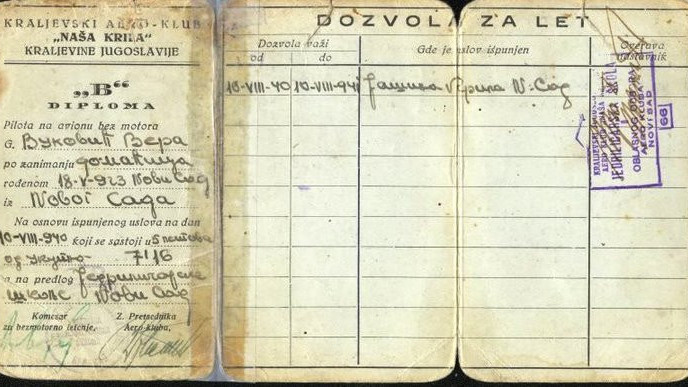 KRALJEVSKI AERO-KLUB
„NAŠA KRILA"
KRALJEVINE JUGOSLAVIJE
„B"
DIPLOMA
Pilota na avionu bez motora
G. Вуковић Вера
po zanimanju домаћица
rođenom 18-V-923 Нови Сад
iz Новог Сада
Na osnovu ispunjenog uslova na dan
10-VIII-940 koji se sastoji u 5 летова
од укупно 7'16
a na predlog Једриличарске
школе Нови Сад
Komesar
za bezmotorno letenje,
Z. Pretsednika
Aero-kluba,
DOZVOLA ZA LET
Dozvola važi
od
do
Gde je uslov ispunjen
Overava
nastavnik
10-VIII-40
10-VIII-941
Н-Сад
OBLASNOG ODBORA
AERO KLUBA
NOVI SAD
66